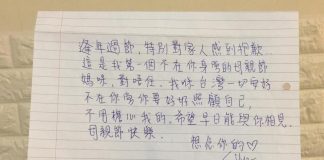 逢年過節,特別對家人感到抱歉
這是我第一個不在你身旁的母親節
媽咪,對唔住,我喺台灣一切安好
不在你旁你要好好照顧自己,
不用擔心我的,希望早日能與你相見,
母親節快樂
想念你的♡